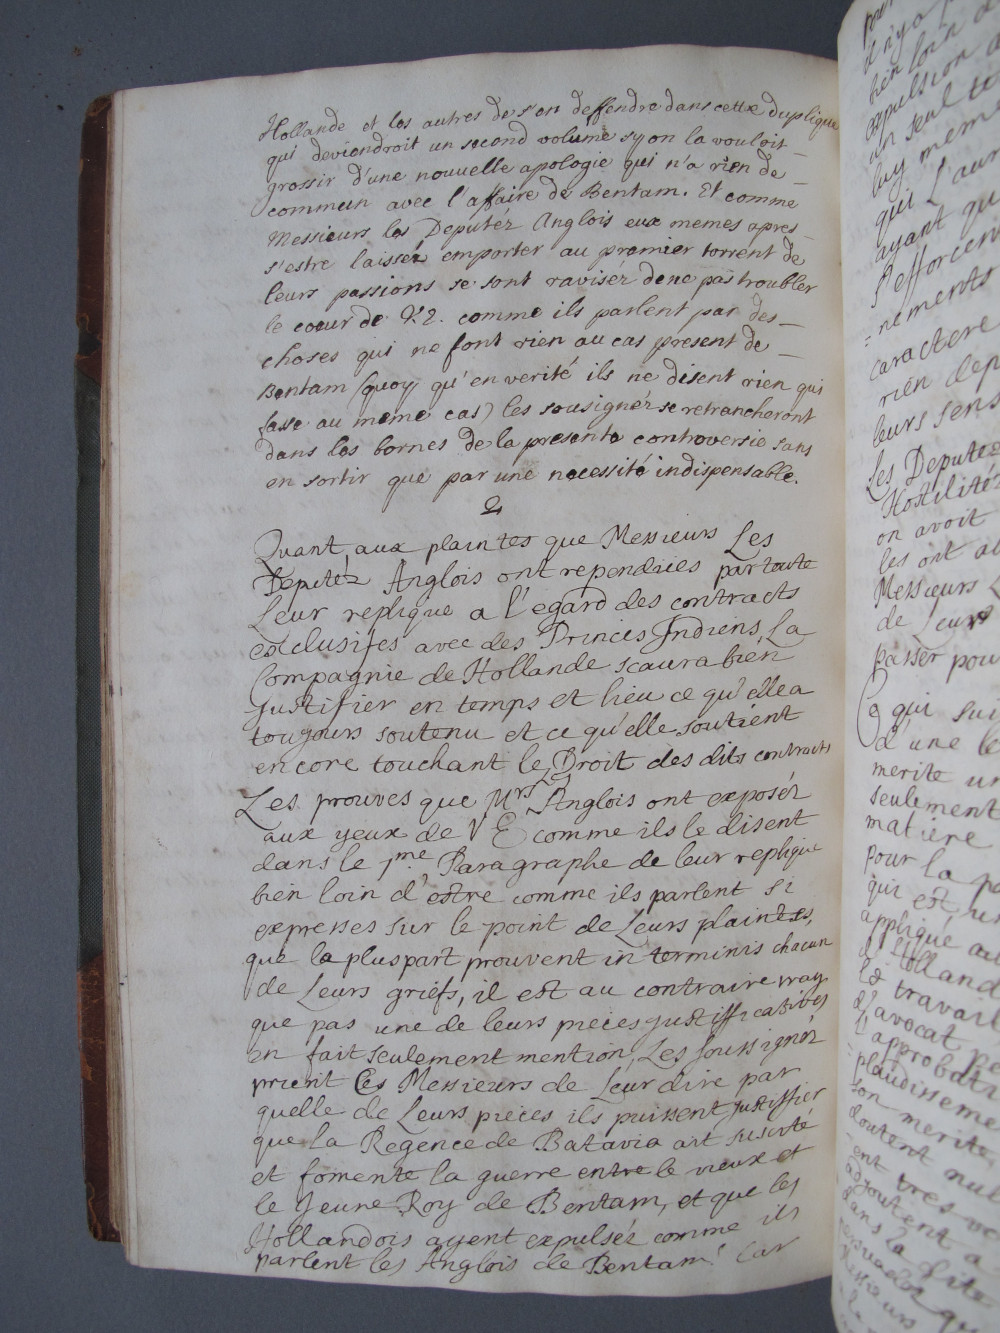 Hollande et les autres de s'en deffendre dans cette duplique
qui deviendroit un second volume sy on la vouloit
grossir d'une nouvelle apologie qui n'a rien de
commun avec l'affaire de Bentam. Et comme
Messieurs les Deputéz Anglois eux memes apres
s'estre laissez emporter au premier torrent de
leurs passions se sont ravisez de ne pas troubler
le coeur de V.E. comme ils parlent par des
choses qui ne font rien au cas present de
Bentam (quoy qu'en verité ils ne disent rien qui
fasse au meme cas) les sousignéz se retrancheront
dans les bornes de la presente controversie sans
en sortir que par une necessité indispensable.
2
Quant aux plaintes que Messieurs Les
Deputéz Anglois ont rependües par toute
Leur replique a l'egard des contracts
exclusifes avec des Princes Indiens, La
Compagnie de Hollande scaura bien
Justifier en temps et lieu ce qu'elle a
toujours soutenu et ce qu'elle soutient
encore touchant le Droit des dits contracts
Les prouves que Mrs Les Anglois ont exposéz
aux yeux de V E comme ils le disent
dans le 7me Paragraphe de leur replique
bien loin d'estre comme ils parlent si
expresses sur le point de Leurs plaintes,
que la pluspart prouvent in terminis chacun
de Leurs griefs, il est au contraire vray
que pas une de leurs pieces justifficatives
en fait seulement mention, Les soussignéz
prient Ces Messieurs de Leur dire par
quelle de Leurs pieces ils puissent justiffier
que la Regence de Batavia ait suscité
et fomente la guerre entre le vieux et
le Jeune Roy de Bentam, et que les
Hollandois ayent expulséz comme ils
parlent les Anglois de Bentam. Car
qui L'aur
ayant qu
S'efforcent
nements
caractere
rien dep
leurs sens
Les Deputez
Hostilitéz
on avoit
les ont
Messieurs
de Leur
passer pou
Ce qui sui
d'une le
merite un
seulement
matiere
pour la
qui est
appliqué au
d'Hollande
le travail
d'avocat
l'approbati
plaudisseme
son merite
doutent nul